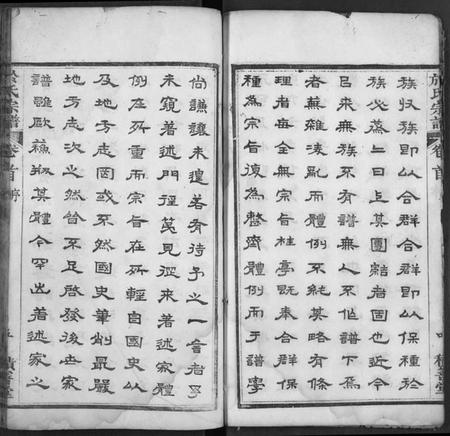 族收族即以合羣合羣即以保種於
族必蒸上日上其團結者固也近今
以來無族不有譜無人不作譜下焉
者蕪雜凌亂而體例不純其略有條
理者毎全無宗旨桂亭既奉合群保
種為宗旨復為整齊體例而于譜學
於氏宗譜
卷首
序
尚謙讓未遑若有待予之一言者予
未窺著述門徑莫見從來著述家體
例在所重而宗旨在所輕自國史以
及地方志罔或不然國史筆削最嚴
地方志次之然皆不足啟發後世家
譜雖歐蘇拟其體今罕出著述家之
於氏宗譜
卷首
序